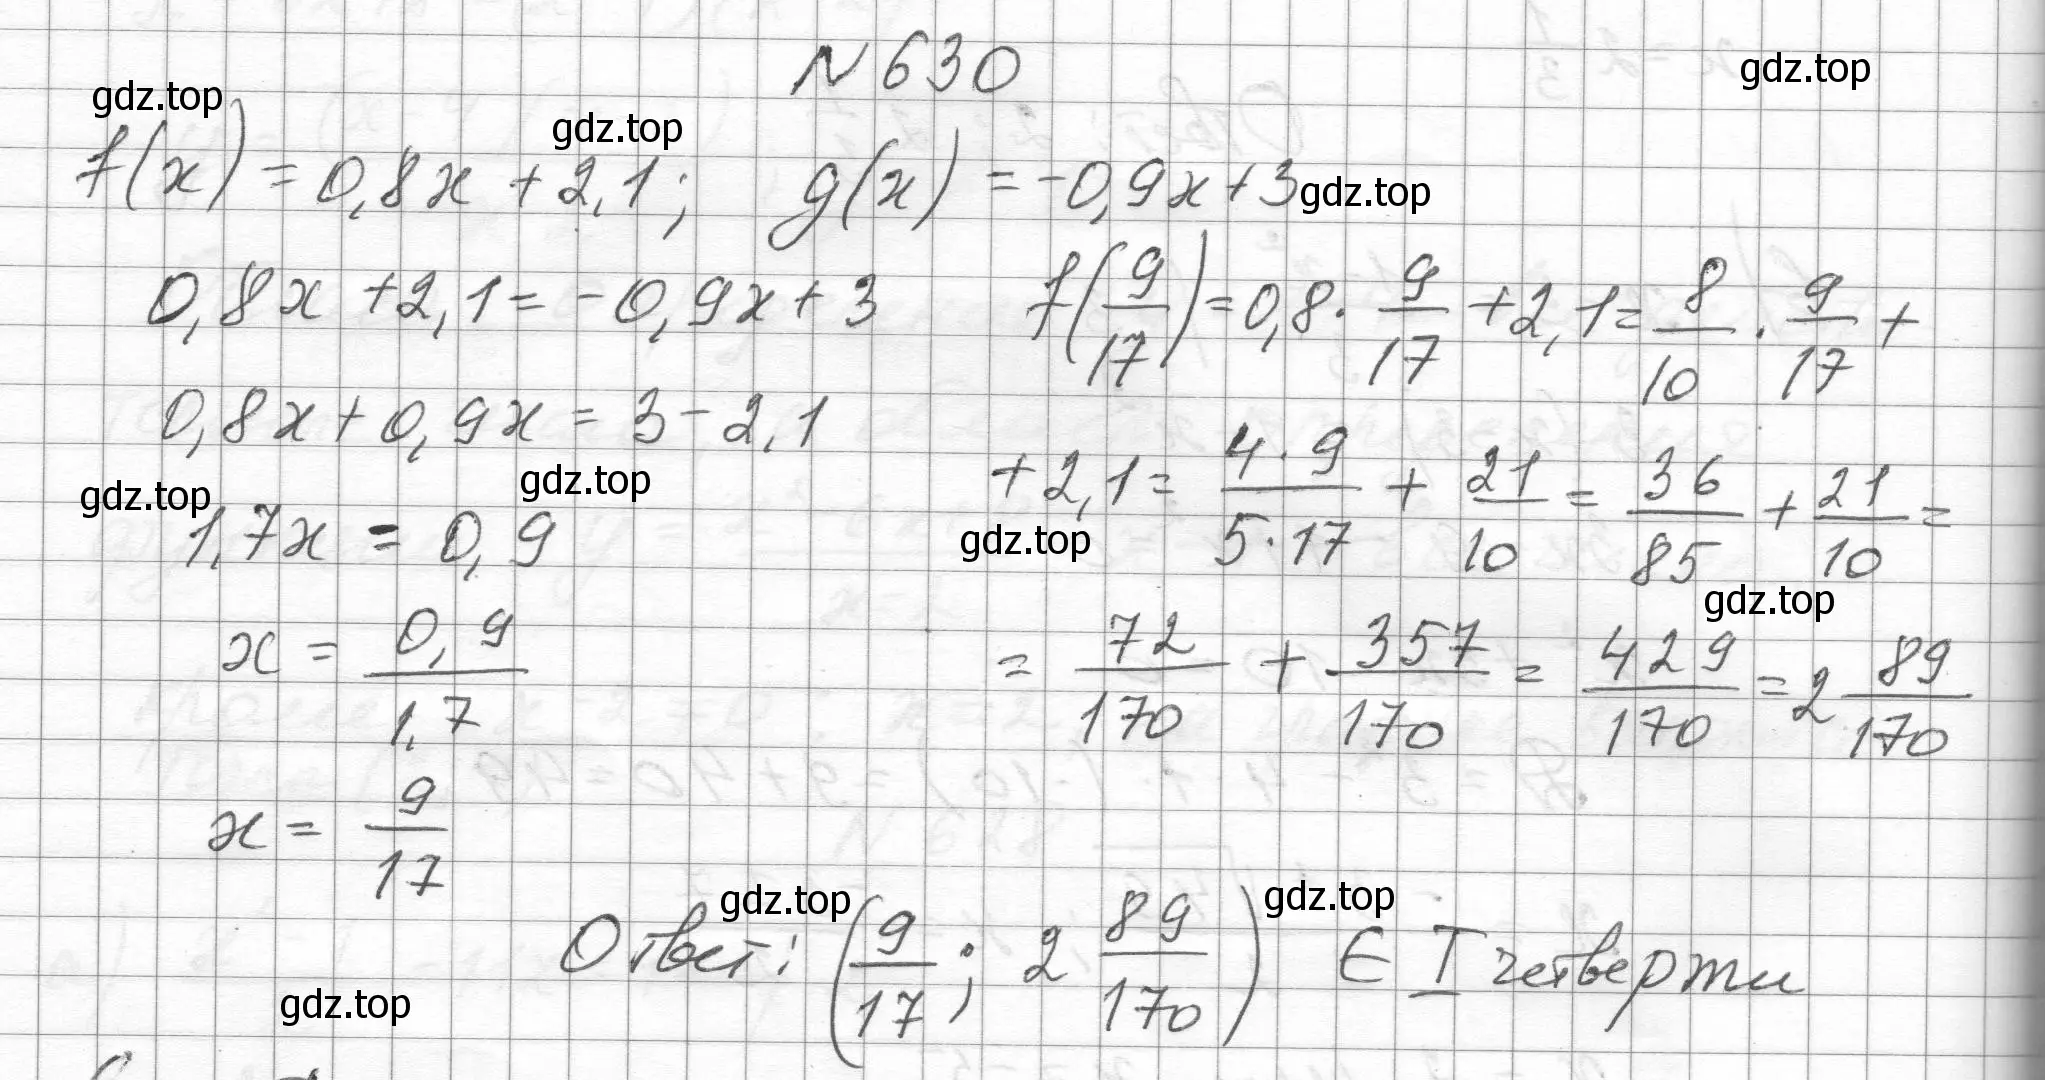 N 630
gdz.top
gdz.top
gdz.top
f(x) = 0,8x + 2,1; g(x) = -0,9x + 3
gdz.top
0,8x + 2,1 = -0,9x + 3
0,8x + 0,9x = 3 - 2,1
gdz.top
gdz.top
1,7x = 0,9
x = 0,9/1,7
x = 9/17
f(9/17) = 0,8 · 9/17 + 2,1 = 8/10 · 9/17 +
+ 2,1 = 4·9/5·17 + 21/10 = 36/85 + 21/10 =
gdz.top
gdz.top
= 72/170 + 357/170 = 429/170 = 2 89/170
gdz.top
gdz.top
Ответ: (9/17; 2 89/170) ∈ I четверти
gdz.top